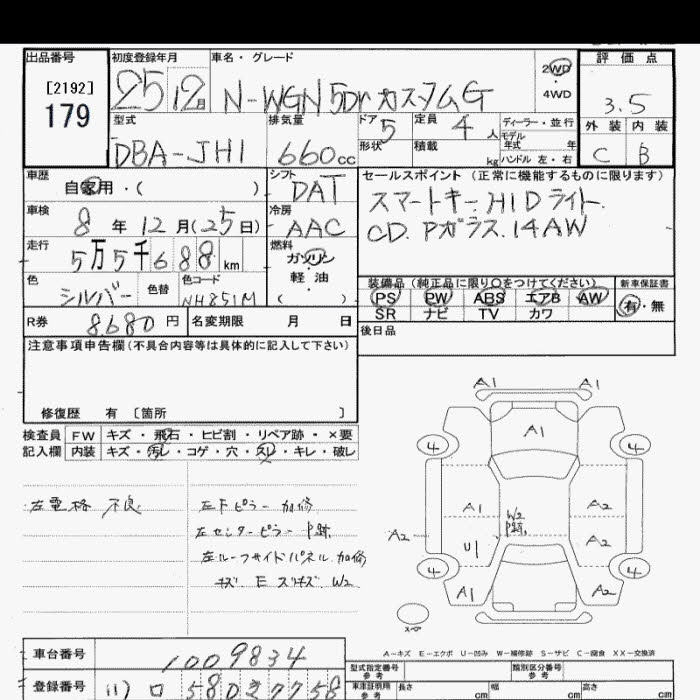 出品番号 初度登録年月 車名・グレード 2WD ・ 4WD 評価点
[2192]
179 25 12月 N-WGN 5Dr カスタムG 3.5
型式 排気量 ドア 5 定員 4人 ディーラー・並行 外装 内装
モデル年式 年
DBA-JH1 660cc 形状 積載 kg ハンドル 左・右 C B
車歴 自家用・( ) シフト DAT セールスポイント (正常に機能するものに限ります)
スマートキー. HID ライト.
車検 8年 12月(25日) 冷房 AAC CD. Pガラス. 14AW
走行 5万5千688km 燃料 ガソリン
・
軽油
( )
色 シルバー 色替 色コード NH851M 装備品(純正品に限り○をつけてください) 新車保証書
PS PW ABS エアB AW 有・無
SR ナビ TV カワ
R券 8680円 名変期限 月 日 後日品
注意事項申告欄(不具合内容等は具体的に記入して下さい)
修復歴 有 〔箇所 〕
検査員記入欄 FW キズ・飛石・ヒビ割・リペア跡・×要
内装 キズ・汚レ・コゲ・穴・スレ・キレ・破レ
左電格 不良 左Fピラー 加修
左センターピラー P跡.
左ルーフサイドパネル. 加修
キズ. E スリキズ. W2
A1 A1
A1
4 4
A1 W2 P跡. A2
A2 U1 A2
4 4
A1 A2
スペア
A-キズ E-エクボ U-凹み W-補修跡 S-サビ C-腐食 XX-交換済
車台番号 1009834 型式指定番号 参考 類別区分番号 参考
登録番号 580 7758 車庫証明用 参考 長さ cm 幅 cm 高さ cm